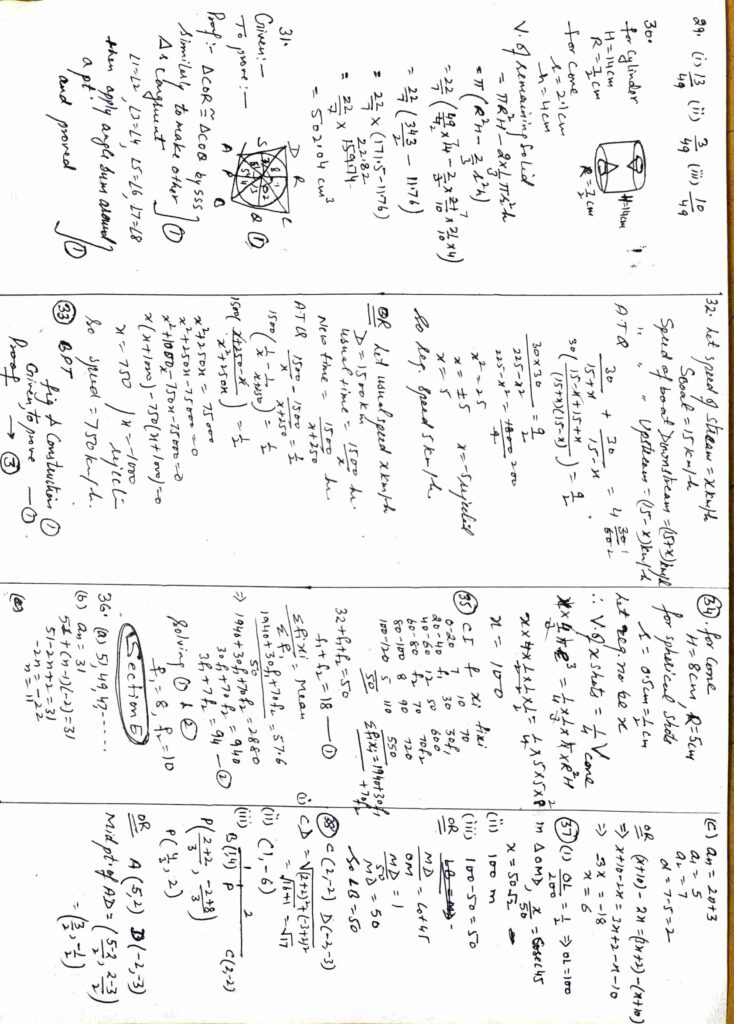 29. (i) 13/49 (ii) 3/49 (iii) 10/49
30.
for cylinder
H = 14cm
R = 7/2 cm
for cone
r = 2.1cm
h = 4cm
H=14cm
R = 7/2 cm
V. of remaining solid
= πR²H - 2×1/3 πr²h
= π(R²H - 2/3 r²h)
= 22/7 (49/4 × 14 - 2/3 × 21/10 × 21/10 × 4)
= 22/7 (343/2 - 11.76)
= 22/7 × (171.5 - 11.76)
22.82
= 22/7 × 159.74
= 502.04 cm³
31.
Given:-
To prove:-
D R C
S Q
A P B
①
Proof:- ΔCOR ≅ ΔCOQ by SSS
Similarly to make other
Δs congruent ①
∠1=∠2, ∠3=∠4, ∠5=∠6, ∠7=∠8
then apply angle sum around
a pt.
and proved ①
32. Let speed of stream = x km/h
S boat = 15 km/h
Speed of boat Downstream = (15+x) km/h
" " " Upstream = (15-x) km/h
ATQ
30/(15+x) + 30/(15-x) = 4 30/60
30((15-x+15+x)/((15+x)(15-x))) = 9/2
(30×30)/(225-x²) = 9/2
225-x² = 1800/9 200
x² = 25
x = ±5 x = -5 rejected
x = 5
So req. speed 5 km/h.
OR Let usual speed x km/h
D = 1500 km
usual time = 1500/x hr.
New time = 1500/(x+250) hr
ATQ 1500/x - 1500/(x+250) = 1/2
1500(1/x - 1/(x+250)) = 1/2
1500((x+250-x)/(x²+250x)) = 1/2
x²+250x = 75000
x²+250x-75000=0
x²+1000x-750x-75000=0
x(x+1000)-750(x+1000)=0
x = 750 / x = -1000
reject
So speed = 750 km/h.
33 BPT
fig & Construction ①
Given, to prove — ①
Proof → ③
34. for cone
H = 8cm, R = 5cm
for spherical shots
r = 0.5cm = 1/2 cm
Let req no be x
∴ V of x shots = 1/4 V cone
x × 4/3 π r³ = 1/4 × 1/3 × π R²H
x × 4 × 1/2 × 1/2 × 1/2 = 1/4 × 5×5×8
x = 100
35 CI f xi fixi
0-20 7 10 70
20-40 f1 30 30f1
40-60 12 50 600
60-80 f2 70 70f2
80-100 8 90 720
100-120 5 110 550
50 Σfixi = 1940+30f1+70f2
32+f1+f2 = 50
f1+f2 = 18 — ①
Σfixi/Σfi = Mean
(1940+30f1+70f2)/50 = 57.6
⇒ 1940+30f1+70f2 = 2880
30f1+70f2 = 940
3f1+7f2 = 94 — ②
Solving ① & ②
f1 = 8, f2 = 10
Section E
36. (a) 51, 49, 47, .....
(b) an = 31
51+(n-1)(-2) = 31
51-2n+2 = 31
-2n = -22
n = 11
(c) an = 2n+3
a1 = 5
a2 = 7
d = 7-5 = 2
OR (x+10) - 2x = (3x+2) - (x+10)
⇒ x+10-2x = 3x+2-x-10
⇒ -3x = -18
x = 6
37 (i) OL/200 = 1/2 ⇒ OL = 100
in ΔOMD, x/50 = Cosec 45
x = 50√2
(ii) 100 m
(iii) 100-50 = 50
OR
MD/OM = Cot 45
MD/50 = 1
MD = 50
So LB = 50
38 C(2,-2) D(-2,-3)
(i) CD = √((2+2)²+(-3+4)²
= √(16+1) = √17
(ii) C(1,-6)
(iii) 1 2
B(1,4) P C(2,-2)
P((2+2)/3, (-2+8)/3)
P(4/3, 2)
OR A(5,2) D(-2,-3)
Mid pt. of AD = ((5-2)/2, (2-3)/2)
= (3/2, -1/2)